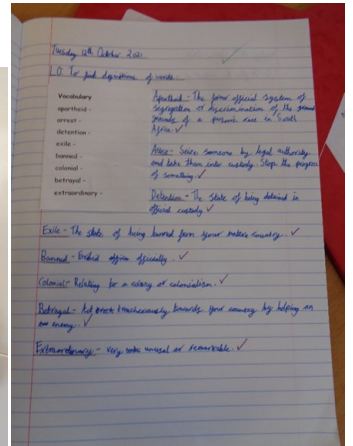 Tuesday 12th October 2021
L.O. To find definitions of words.
Vocabulary
apartheid -
arrest -
detention -
exile -
banned -
colonial -
betrayal -
extraordinary -
Apartheid - The former official system of
segregation or discrimination of the
grounds of a persons race in South
Africa.
Arrest - Seize someone by legal authority
and take them into custody. Stop the progress
of something.
Detention - The state of being detained in
official custody.
Exile - The state of being banned from your native country.
Banned - officially.
Colonial - Relating for a colony or colonialism.
Betrayal - Act treacherously towards your country by helping an
enemy.
Extraordinary - very unusual or remarkable.